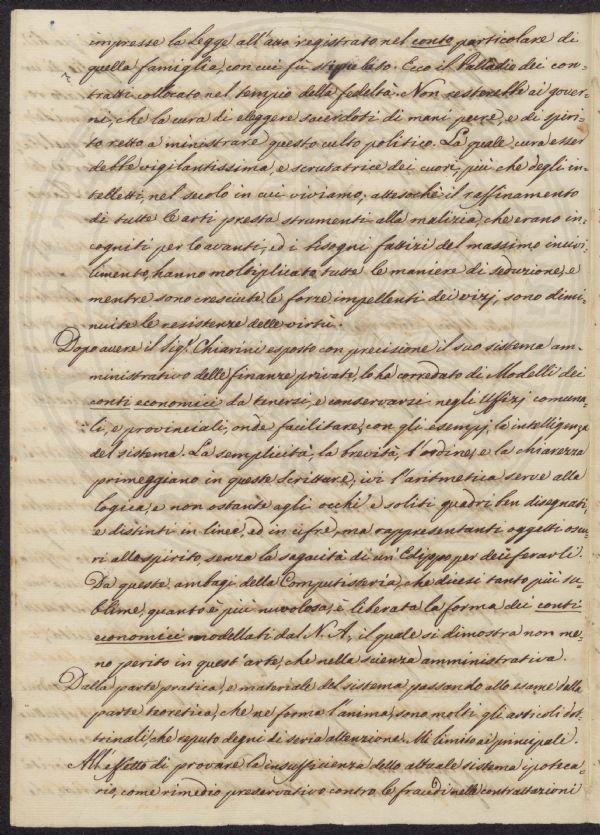 impresse la Legge all'atto registrato nel conto particolare di
quella famiglia, con cui fù stipulato. Ecco il Palladio dei con-
tratti collocato nel tempio della fedeltà. Non resterebbe ai gover-
ni, che la cura di eleggere sacerdoti di mani pure, e di spiri-
to retto a ministrare questo culto politico. La quale cura esser
debbe vigilantissima, e scrutatrice dei cuori, più che degli in-
telletti, nel secolo in cui viviamo; attesochè il raffinamento
di tutte le arti presta strumenti alla malizia, che erano in-
cogniti per lo avanti, ed i bisogni fattizi del massimo incivi-
limento, hanno moltiplicato tutte le maniere di seduzione, e
mentre sono cresciute le forze impellenti dei vizj, sono dimi-
nuite le resistenze delle virtù.
Dopo avere il Sig.r Chiarini esposto con precisione il suo sistema am-
ministrativo delle finanze private, lo ha corredato di Modelli dei
conti economici da tenersi, e conservarsi negli Uffizj comuna-
li, e provinciali, onde facilitare, con gli esempj, lo intelligenza
del sistema. La semplicità, la brevità, l'ordine, e la chiarezza
primeggiano in queste Scritture, ivi l'aritmetica serve alla
logica, e non ostante agli occhi i soliti quadri ben disegnati,
e distinti in linee, ed in cifre, ma rappresentanti oggetti oscu-
ri allo spirito, senza la sagacità di un Edippo per deciferarli.
Da queste ambagi della Computisteria, che dicesi tanto più su-
blime, quanto è più nuvolosa, è liberata la forma dei conti
economici modellati dal N. A, il quale si dimostra non me-
no perito in quest'arte, che nella scienza amministrativa.
Dalla parte pratica, e materiale del sistema passando allo esame della
parte teoretica, che ne forma l'anima, sono molti gli articoli dot-
trinali, che reputo degni di seria attenzione. Mi limito ai principali.
All'effetto di provare la insufficienza dello attuale sistema ipoteca-
rio, come rimedio preservativo contro le fraudi nelle contrattazioni